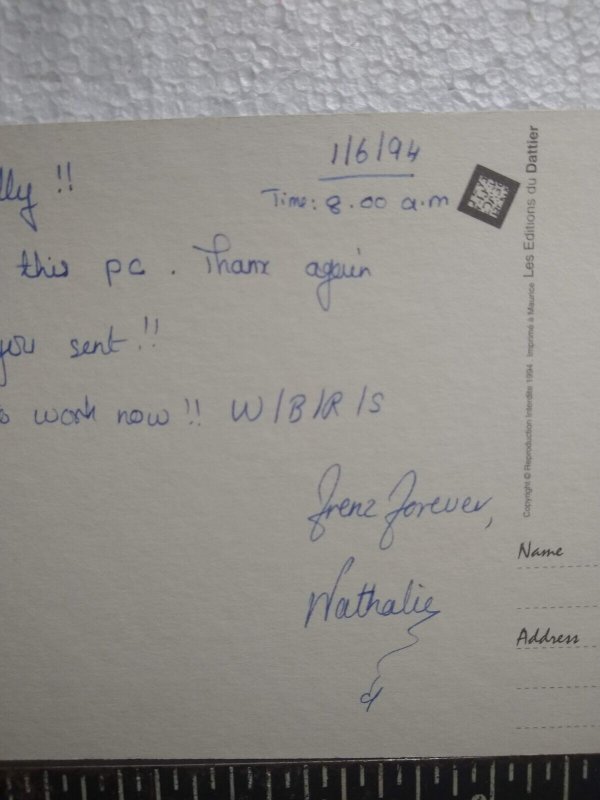 1/6/94
lly !!
Time: 8.00 a.m
this pc. Thanx again
you sent!!
to work now!! W/B/R/S
Frenz Forever,
Nathalie
Copyright © Reproduction Interdite 1994 Imprimé à Maurice Les Editions du Dattier
Name
Address